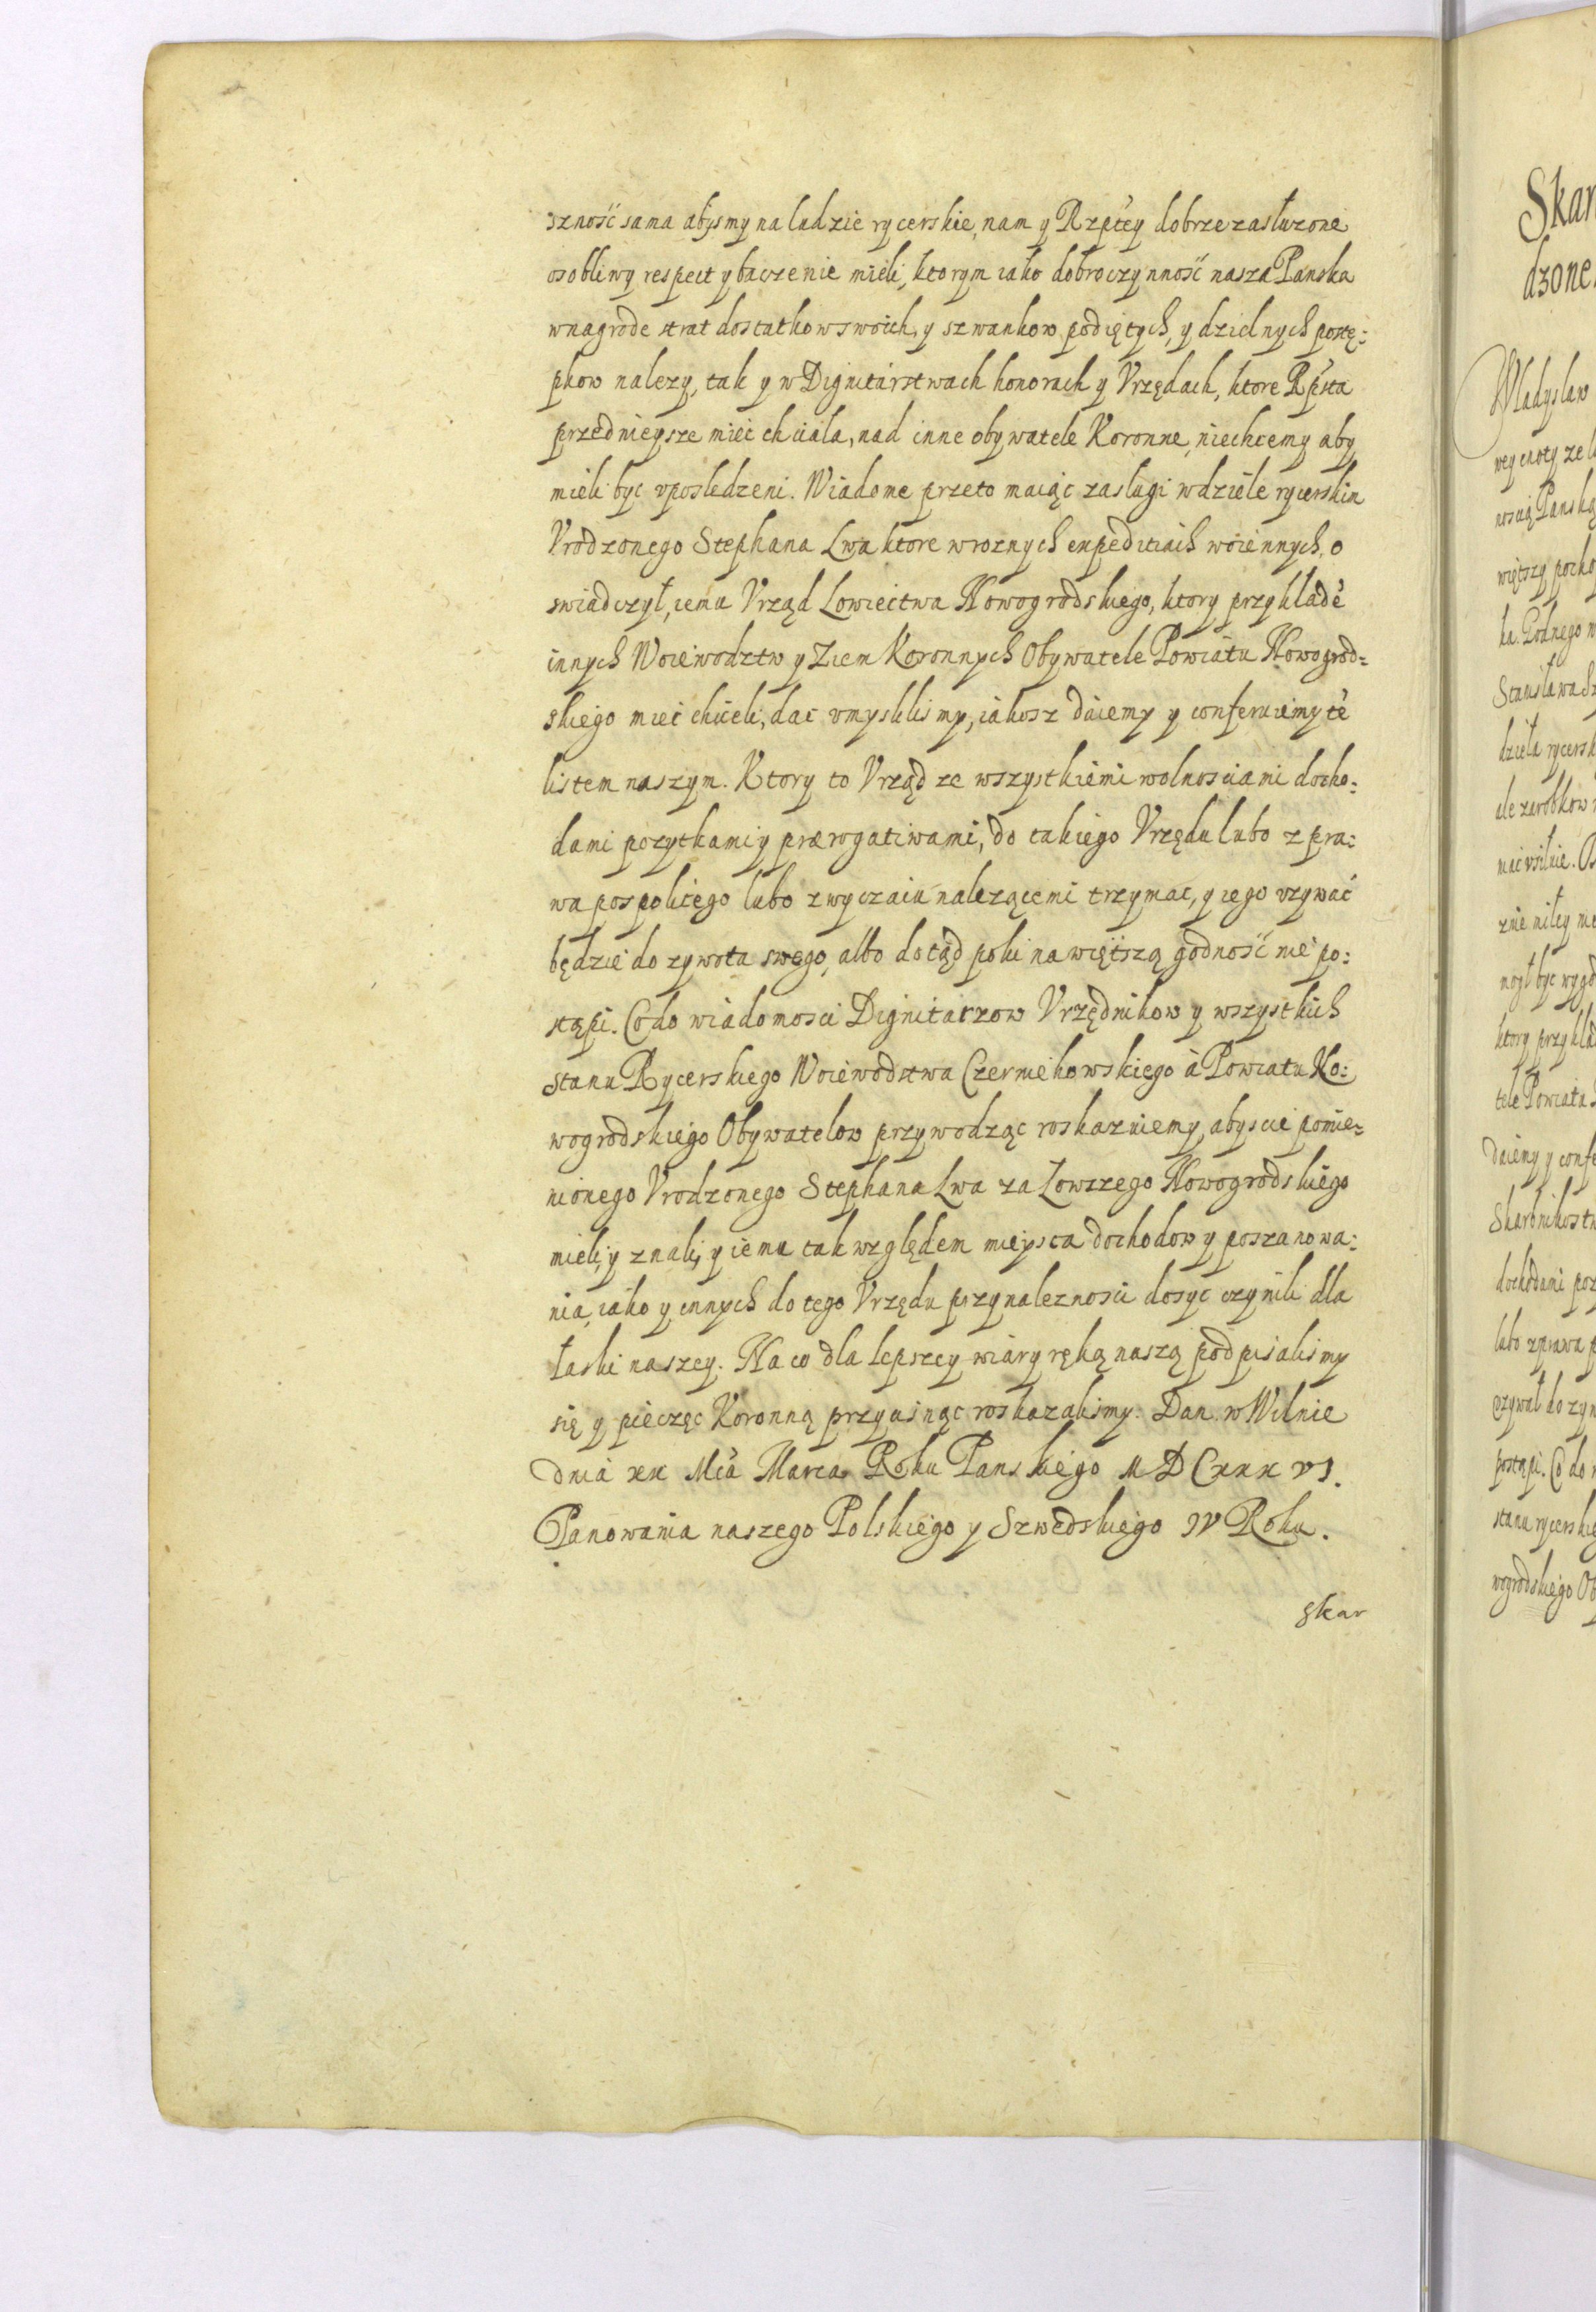 szność sama abysmy na ludzie rycerskie, nam y Rzptey dobrze zasłużone
osobliwy respect y baczenie mieli, ktorym iako dobroczynność nasza Panska
wnagrode strat dostatkow swoich, y szwankow podiętych, y dzielnych postę:
pkow nalezy, tak y w Dignitarstwach honorach y Vrzędach, ktore Rpsta
przednieysze mieć chciała, nad inne obywatele Koronne, niechcemy aby
mieli byc vposledzeni. Wiadome przeto maiąc zaslugi wdziele rycerskim
Vrodzonego Stephana Lwa ktore wroznych expeditiach woiennych, o
swiadczył, iemu Vrząd Lowiectwa Nowogrodskiego, ktory przykladē
innych Woiewodztw y Ziem Koronnych Obywatele Powiatu Nowogrod=
skiego mieć chcieli, dac vmyslilismy, iakosz daiemy y conferuiemy tē
listem naszym. Ktory to Vrząd ze wszystkiemi wolnosciami docho:
dami pozytkami y prærogatiwami, do takiego Vrzędu lubo z pra:
wa pospolitego lubo zwyczaiu nalezącemi trzymac, y iego vzywać
będzie do zywota swego, albo dotąd poki na więtszą godność nie po:
stąpi. Co do wiadomosci Dignitarzow Vrzędnikow y wszystkich
stanu Rycerskiego Woiewodstwa Czerniehowskiego à Powiatu No:
wogrodskiego Obywatelow przywodząc roskazuiemy, abyscie pomie=
nionego Vrodzonego Stephana Lwa za Lowczego Nowogrodskiego
mieli, y znali, y iemu tak względem mieysca dochodow y poszanowa:
nia, iako y innych do tego Vrzędu przynaleznosci dosyc czynili dla
łaski naszey. Na co dla lepszey wiary ręką naszą podpisalismy
się y pieczęc Koronną przycisnąc roskazalismy. Dan w Wilnie
dnia xx Mca Marca Roku Panskiego MDCxxxvi.
Panowania naszego Polskiego y Szwedskiego IV Roku.
skar
Skar
dzone
Wladyslaw
wey cnoty ze
noscią Panską
więtszy pocho
ka Godnego
Stanislawa
dziela rycersk
ale zarobkow
znie
mogł byc
ktory przykla
tele Powiatu
daiemy y confe
Skarbnikostw
dochodami poz
lubo zprawa p
vzywał do zyw
postąpi. Co do
stanu rycerskie
wogrodskiego Ob